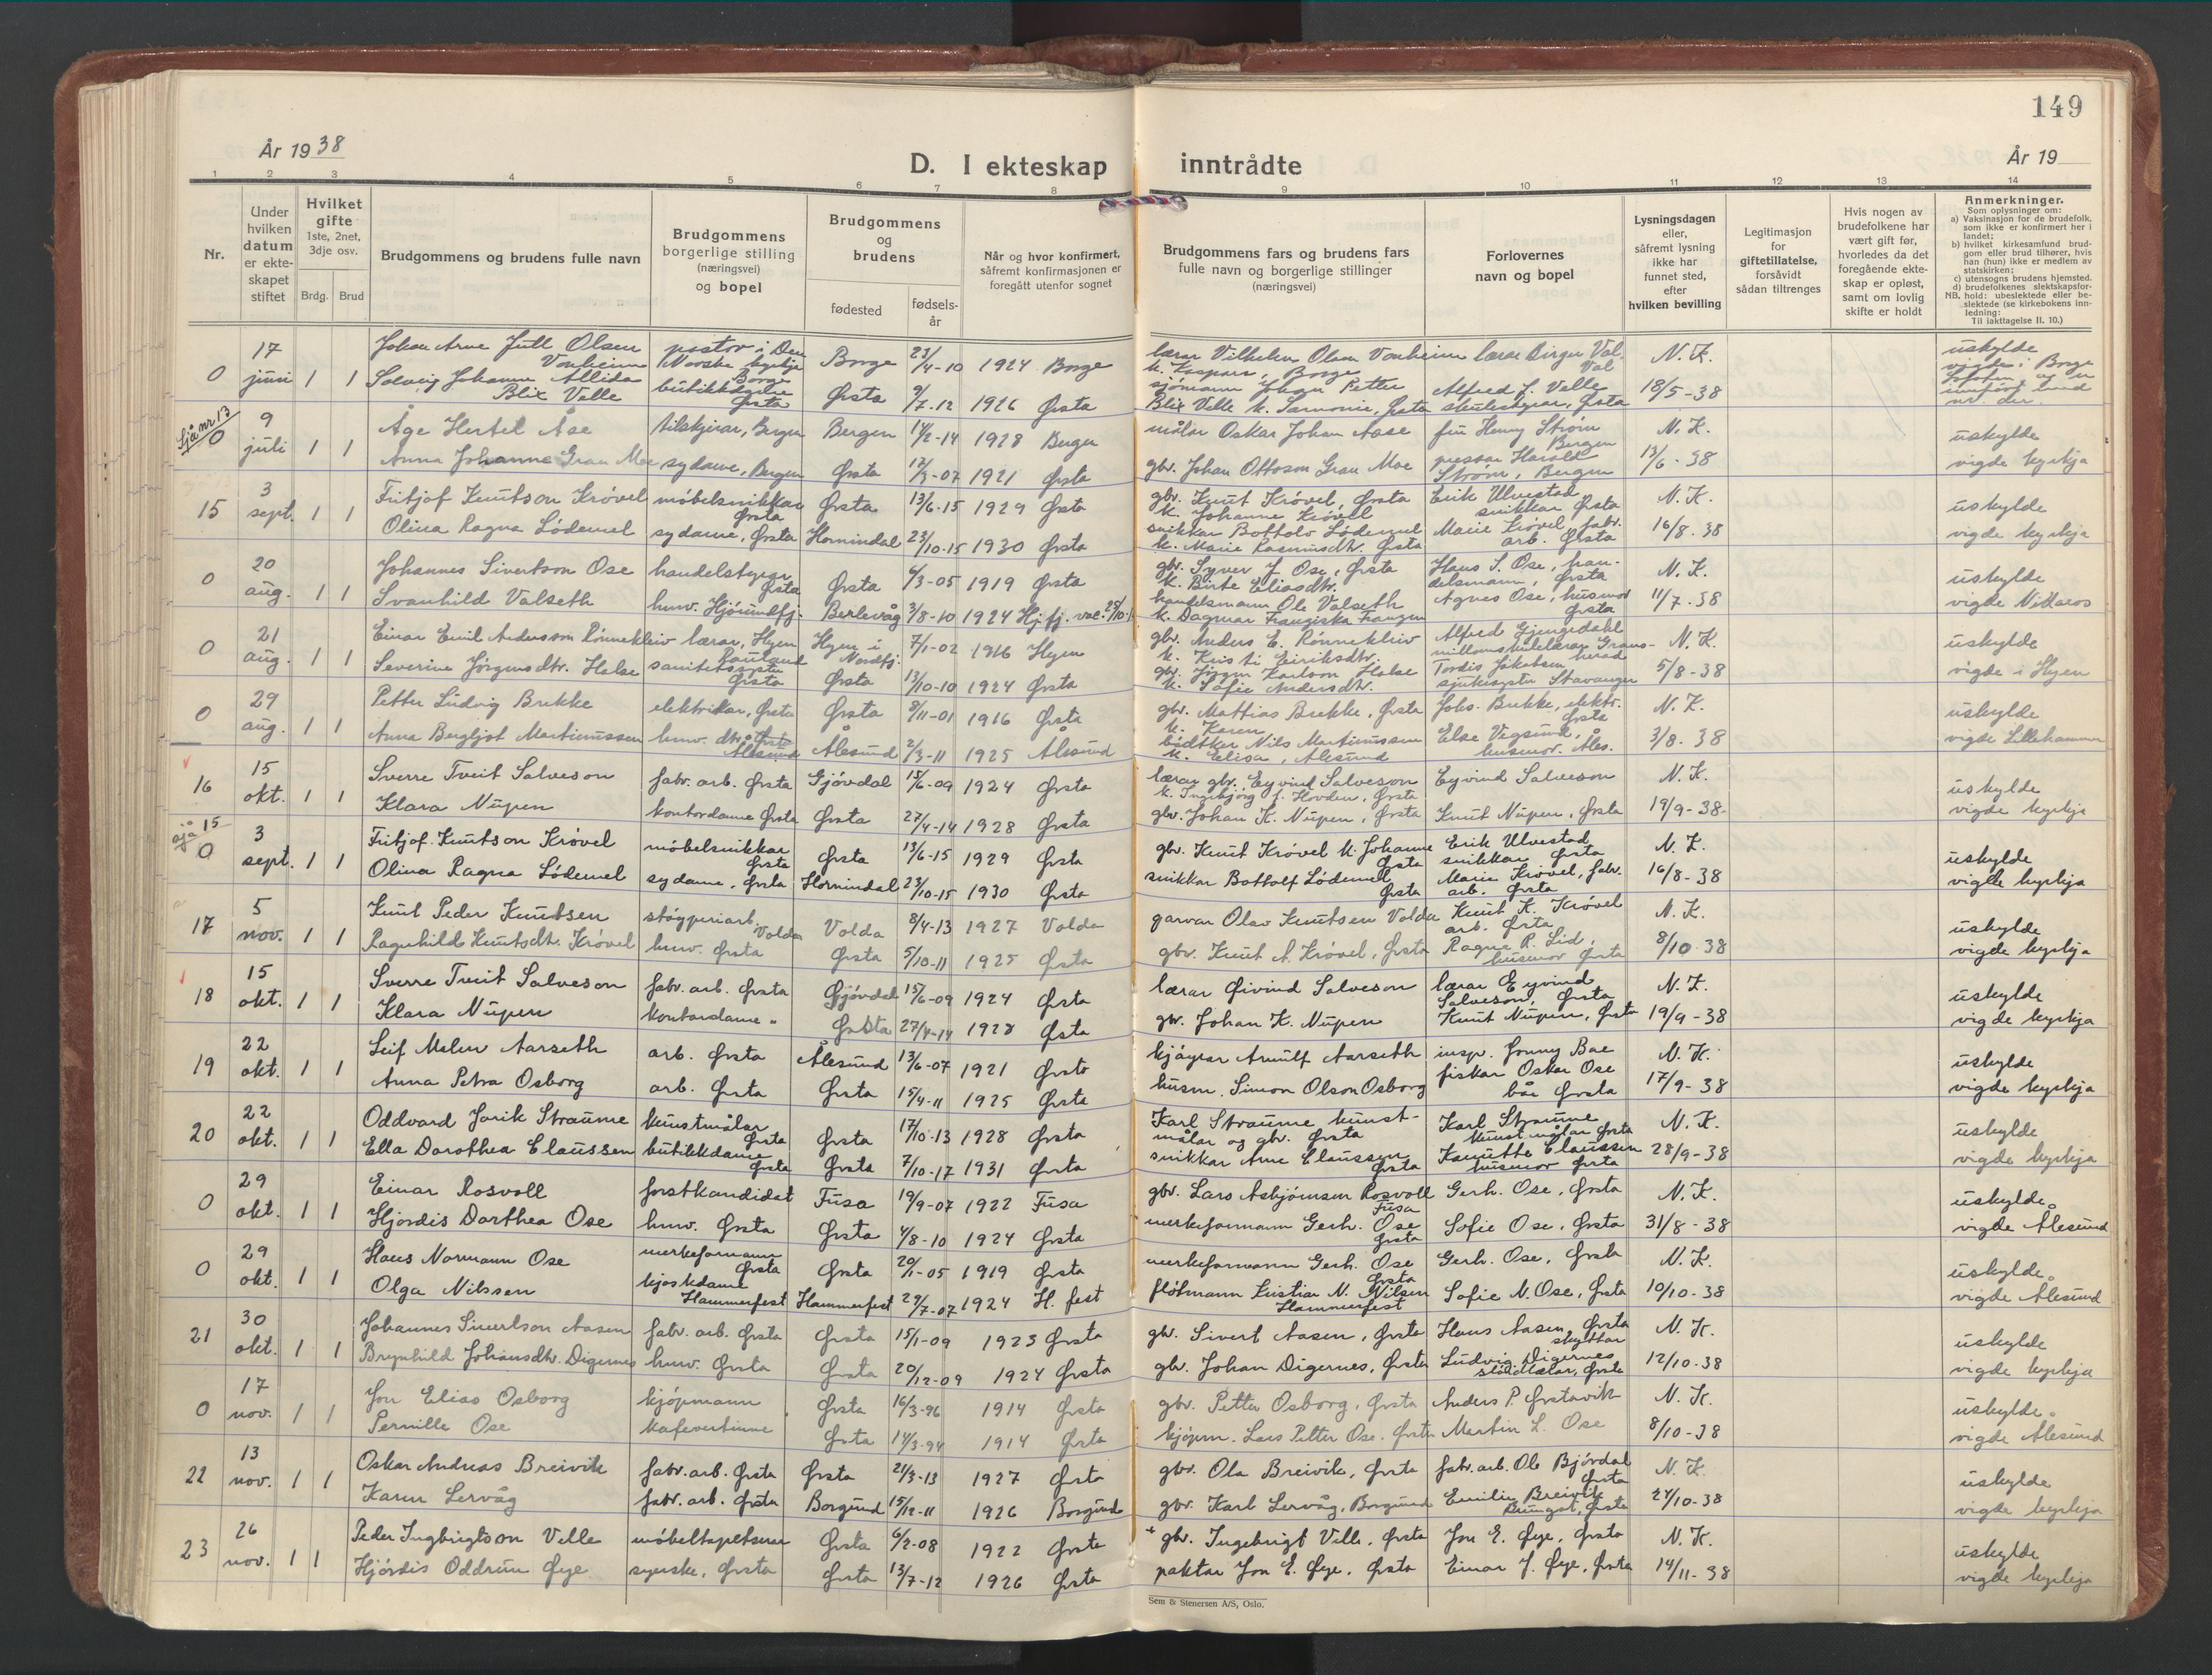 149
År 1938
D. I ekteskap inntrådte
År 19
1 2 3 4 5 6 7 8 9 10 11 12 13 14
Nr.
Under hvilken datum er ekteskapet stiftet
Hvilket gifte
1ste, 2net, 3dje osv.
Brdg. Brud
Brudgommens og brudens fulle navn
Brudgommens borgerlige stilling (næringsvei) og bopel
Brudgommens og brudens
fødested
fødselsår
Når og hvor konfirmert, såfremt konfirmasjonen er foregått utenfor sognet
Brudgommens fars og brudens fars fulle navn og borgerlige stillinger (næringsvei)
Forlovernes navn og bopel
Lysningsdagen eller, såfremt lysning ikke har funnet sted, efter hvilken bevilling
Legitimasjon for giftetillatelse, forsåvidt sådan tiltrenges
Hvis nogen av brudefolkene har vært gift før, hvorledes da det foregående ekteskap er opløst, samt om lovlig skifte er holdt
Anmerkninger.
Som oplysninger om:
a) Vaksinasjon for de brudefolk, som ikke er konfirmert her i landet;
b) hvilket kirkesamfund brudgom eller brud tilhører, hvis han (hun) ikke er medlem av statskirken;
c) utensogns brudens hjemsted.
d) brudefolkenes slektskapsforhold: ubeslektede eller beslektede (se kirkebokens innledning:
NB.
Til iakttagelse II. 10.)
0 17 juni 1 1 Johan Arne Jull Olsen Vonheim pastor i Den Norske kyrkja Borge Borge 23/4-10 1924 Borge lærar Vilhelm Olsen Vonheim k. Kaspara, Borge lærar Birger Val Val N.K. uskylde
Solveig Johanne Allida Blix Velle butikkdame Ørsta Ørsta 9/7-12 1926 Ørsta sjømann Johan Petter Blix Velle k. Samonie, Ørsta Alfred J. Velle skulestyrar, Ørsta 18/5-38 vigde i Borge
Sjå nr 13
0 9 juli 1 1 Åge Hertel Åse tilskjerar, Bergen Bergen 14/2-14 1928 Bergen målar Oskar Johan Aase fru Henny Strøm Bergen N.K. uskylde
Anna Johanne Grau Moe sydame, Bergen Ørsta 12/3-07 1921 Ørsta gbr. Johan Ottoson Grau Moe pressar Harald Strøm, Bergen 13/6-38 vigde kyrkja
15 3 sept. 1 1 Fritjof Knutson Krøvel møbelsnikkar Ørsta Ørsta 13/6-15 1929 Ørsta gbr. Knut Krøvel, Ørsta k. Johanne Krøvel Erik Ulvestad snikkar Ørsta N.K. uskylde
Olina Ragna Lødemel sydame, Ørsta Hornindal 23/10-15 1930 Ørsta snikkar Bottolv Lødemel k. Marie Rasmusdtr. Ørsta Marie Krøvel, fabr. arb. Ørsta 16/8-38 vigde kyrkja
0 20 aug. 1 1 Johannes Sivertson Ose handelstyrar Ørsta Ørsta 6/3-05 1919 Ørsta gbr. Syver J. Ose, Ørsta k. Birte Eliasdtr. Hans S. Ose, handelsmann, Ørsta N.K. uskylde
Svanhild Valseth husv. Hjørundfj. Berlevåg 3/8-10 1924 Hj.fj. vac. 25/10 handelsmann Ole Valseth k. Dagmar Franziska Franzen Agnes Ose, husmor Ørsta 11/7-38 vigde Nidaros
0 21 aug. 1 1 Einar Emil Andersson Rønnekleiv lærar, Hyen Hyen i Nordfj. 7/1-02 1916 Hyen gbr. Anders E. Rønnekleiv k. Kristi Eiriksdtr. Alfred Gjengedahl N.K. uskylde
Severine Jørgensdtr. Halse sanitetssyster Ørsta Ørsta 13/10-10 1924 Ørsta gbr. Jørgen Karlson Halse k. Sofie Andersdtr. Tordis Jakobsen, sjukesyster Stavanger 5/8-38 vigde i Hyen
0 29 aug. 1 1 Petter Ludvig Brekke elektrikar, Ørsta Ørsta 8/11-01 1916 Ørsta gbr. Mattias Brekke, Ørsta k. Karen Johs. Brekke, elektr. Ørsta N.K. uskylde
Anna Bergljot Martinussen husv. Ålesund Ålesund 2/3-11 1925 Ålesund bødtker Nils Martinussen k. Elisa, Ålesund Else Vegsund, husmor. Åles. 3/8-38 vigde Lillehammer
16 15 okt. 1 1 Sverre Tveit Salveson fabr. arb. Ørsta Gjøvdal 15/6-09 1924 Ørsta lærar gbr. Eyvind Salveson k. Ingebjørg f. Hovden, Ørsta Eyvind Salveson N.K. uskylde
Klara Nupen kontordame Ørsta Ørsta 27/4-14 1928 Ørsta gbr. Johan K. Nupen, Ørsta Knut Nupen, Ørsta 19/9-38 vigde kyrkja
sjå 15
0 3 sept. 1 1 Fritjof Knutson Krøvel møbelsnikkar Ørsta Ørsta 13/6-15 1929 Ørsta gbr. Knut Krøvel k. Johanne Ørsta Erik Ulvestad snikkar Ørsta N.K. uskylde
Olina Ragna Lødemel sydame, Ørsta Hornindal 23/10-15 1930 Ørsta snikkar Bottolf Lødemel Ørsta Marie Krøvel, fabr. arb. Ørsta 16/8-38 vigde kyrkja
17 5 nov. 1 1 Knut Peder Knutsen støyperiarb. Volda Volda 8/4-13 1927 Volda garvar Olav Knutsen Volda Knut K. Krøvel arb. Ørsta N.K. uskylde
Ragnhild Knutsdtr. Krøvel husv. Ørsta Ørsta 5/10-11 1925 Ørsta gbr. Knut A. Krøvel, Ørsta Ragna R. Lid, husmor Ørsta 8/10-38 vigde kyrkja
18 15 okt. 1 1 Sverre Tveit Salveson fabr. arb. Ørsta Gjøvdal 15/6-09 1924 Ørsta lærar Øivind Salveson lærar Eyvind Salveson, Ørsta N.K. uskylde
Klara Nupen kontordame " Ørsta 27/4-14 1928 Ørsta gbr. Johan K. Nupen Knut Nupen, Ørsta 19/9-38 vigde kyrkja
19 22 okt. 1 1 Leif Melen Aarseth arb. Ørsta Ålesund 13/6-07 1921 Ørsta kjøyrar Arnulf Aarseth insp. Jonny Bae N.K. uskylde
Anna Petra Osborg arb. Ørsta Ørsta 15/4-11 1925 Ørsta husm. Simon Olson Osborg fiskar Oskar Ose båe Ørsta 17/9-38 vigde kyrkja
20 22 okt. 1 1 Oddvard Jarik Straume kunstmålar Ørsta Ørsta 17/10-13 1928 Ørsta Karl Straume kunstmålar og gbr. Ørsta Karl Straume kunstmålar Ørsta N.K. uskylde
Ella Dorothea Claussen butikkdame Ørsta Ørsta 7/10-17 1931 Ørsta snikkar Arne Claussen Ørsta Knutte Claussen husmor Ørsta 28/9-38 vigde kyrkja
0 29 okt. 1 1 Einar Rosvoll forstkandidat Fusa 19/9-07 1922 Fusa gbr. Lars Asbjørnsen Rosvoll Fusa Gerh. Ose, Ørsta N.K. uskylde
Hjørdis Dorthea Ose husv. Ørsta Ørsta 4/8-10 1924 Ørsta merkeformann Gerh. Ose Ørsta Sofie Ose, Ørsta 31/8-38 vigde Ålesund
0 29 okt. 1 1 Hans Normann Ose merkeformann Ørsta Ørsta 20/1-05 1919 Ørsta merkeformann Gerh. Ose Ørsta Gerh. Ose, Ørsta N.K. uskylde
Olga Nilssen kjoskdame Hammerfest Hammerfest 29/7-07 1924 H.fest fløtmann Kristian N. Nilsen Hammerfest Sofie N. Ose, Ørsta 10/10-38 vigde Ålesund
21 30 okt. 1 1 Johannes Sivertson Aasen fabr. arb. Ørsta Ørsta 15/1-09 1923 Ørsta gbr. Sivert Aasen, Ørsta Hans Aasen, Ørsta N.K. uskylde
Brynhild Johansdtr. Digernes husv. Ørsta Ørsta 20/12-09 1924 Ørsta gbr. Johan Digernes, Ørsta Ludvig Digernes Ørsta 12/10-38 vigde kyrkja
0 17 nov. 1 1 Jon Elias Osborg kjøpmann Ørsta 16/3-96 1914 Ørsta gbr. Petter Osborg, Ørsta Anders P. Ørstavik N.K. uskylde
Pernille Ose kafevertinne Ørsta 14/3-94 1914 Ørsta kjøpm. Lars Petter Ose. Ørsta Martin L. Ose 8/10-38 vigde Ålesund
22 13 nov. 1 1 Oskar Andreas Breivik fabr. arb. Ørsta Ørsta 21/3-13 1927 Ørsta gbr. Ola Breivik, Ørsta fabr. arb. Ole Bjørdal Ørsta N.K. uskylde
Karen Lervåg fabr. arb. Ørsta Borgund 15/12-11 1926 Borgund gbr. Karl Lervåg, Borgund Emilie Breivik Ørsta 24/10-38 vigde kyrkja
23 26 nov. 1 1 Peder Ingbrigtson Velle møbeltapetserar Ørsta 6/2-08 1922 Ørsta + gbr. Ingebrigt Velle, Ørsta Jon E. Øye, Ørsta N.K. uskylde
Hjørdis Oddrun Øye syerske, Ørsta Ørsta 13/7-12 1926 Ørsta paktar Jon E. Øye, Ørsta Einar J. Øye, Ørsta 14/11-38 vigde kyrkja
Sem & Stenersen A/S, Oslo.